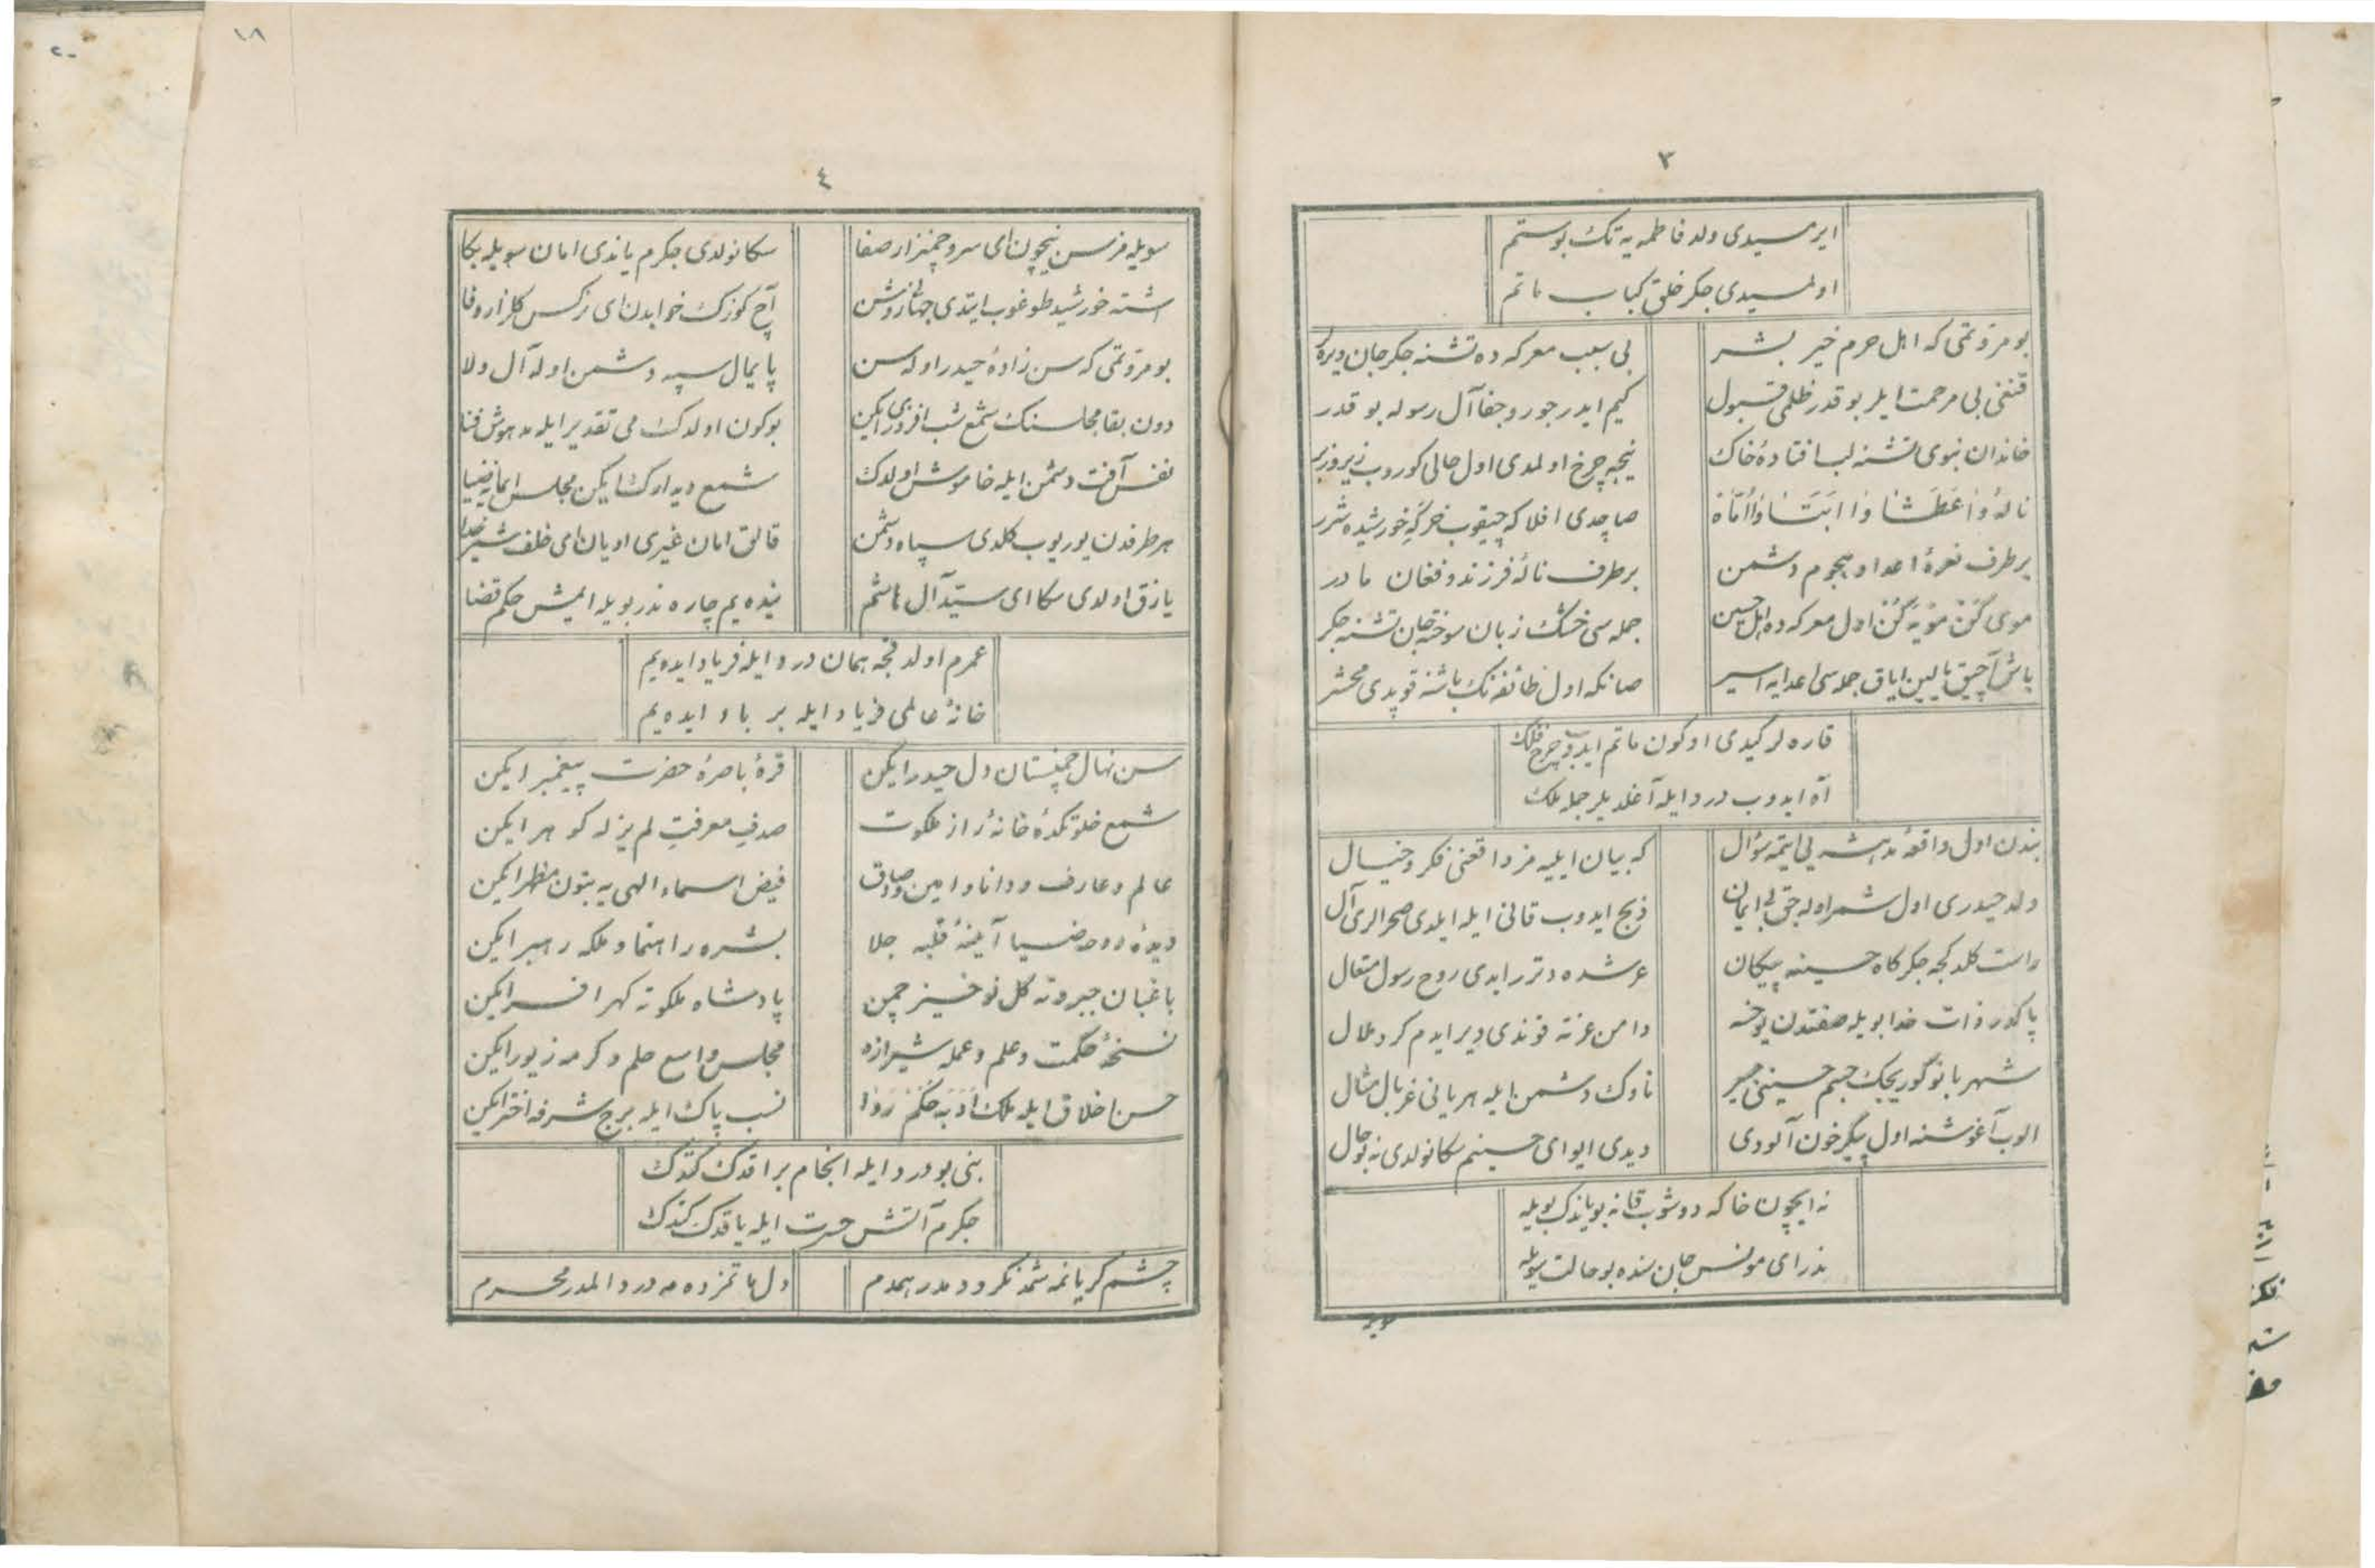 ٣
ایرمسیدی ولد فاطمه یه تک بو ستم
اولمسیدی جکر خلق کباب ماتم
بو مروتمی که اهل حرم خیر بشر
بی سبب معرکه ده تشنه جکر جان ویره
قنغی بی مرحمت ایلر بو قدر ظلمی قبول
کیم ایدر جور و جفا آل رسوله بو قدر
خاندان نبوی تشنه لب افتادهٔ خاک
نیجه چرخ اولمدی اول حالی کوروب زیر و زبر
نالهٔ وا عطشا وا ابتا وا اماه
صاچدی افلاکه چیقوب خرکه خورشیده شرر
بر طرف نعرهٔ اعدا و هجوم دشمن
بر طرف نالهٔ فرزند و فغان مادر
موی کن مویه کن اول معرکه ده اهل حسین
جمله سی خشک زبان سوخته جان تشنه جکر
باش آچیق یالین ایاق جمله سی اعدایه اسیر
صانکه اول طائفه نک باشنه قوپدی محشر
قاره لر گیدی او کون ماتم ایدوب چرخ فلک
آه ایدوب درد ایله آغلدیلر جمله ملک
بندن اول واقعهٔ مدهشه یی ایتمه سؤال
که بیان ایلیه مز واقعه‌نی فکر و خیال
ولد حیدری اول شمر اوله جق بی ایمان
ذبح ایدوب قانی ایله ایلدی صحرالری آل
راست کلدکجه جکرکاه حسینه پیکان
عرشده دتررایدی روح رسول متعال
پاکدر ذات خدا بویله صفتدن یوخسه
دامن عزته قوندی دیر ایدم کرد ملال
شهربانو گوریجک جسم حسینی
ناوک دشمن ایله هر یانی غربال مثال
الوب آغوشنه اول پیکر خون آلودی
دیدی ای وای حسینم سکا نولدی نه بو حال
نه ایچون خاکه دوشوب قانه بویاندک بویله
ندر ای مونس جان سنده بو حالت سویله
سویله
٤
سویله مزسن نیچون ای سرو چمنزار صفا
سکا نولدی جکرم یاندی امان سویله بکا
اشته خورشید طوغوب ایتدی جهانی روشن
آچ کوزک خوابدن ای نرکس کلزار وفا
بو مروتمی که سن زادهٔ حیدر اوله سن
پایمال سپه دشمن اوله آل ولا
دون بقا مجلسنک شمع شب افروزی ایکن
بوکون اولدک می تقدیر ایله مدهوش فنا
نفس آفت دشمن ایله خاموش اولدک
شمع دیدارک ایکن مجلس ایمانه ضیا
هر طرفدن یوریوب کلدی سپاه دشمن
قالق امان غیری اویان ای خلف شیر خدا
یازق اولدی سکا ای سید آل هاشم
نیده یم چاره ندر بویله ایمش حکم قضا
عمرم اولدقجه همان درد ایله فریاد ایده یم
خانهٔ عالمی فریاد ایله بر باد ایده یم
سن نهال چمنستان دل حیدر ایکن
قرهٔ باصرهٔ حضرت پیغمبر ایکن
شمع خلوتکدهٔ خانهٔ راز ملکوت
صدف معرفت لم یزله کوهر ایکن
عالم و عارف و دانا و امین و صادق
فیض اسماء الهی یه بتون مظهر ایکن
دیدهٔ روحه ضیا آینهٔ قلبه جلا
بشره راهنما و ملکه رهبر ایکن
باغبان جبروته کل نوخیز چمن
پادشاه ملکوته کهر افسر ایکن
نسخهٔ حکمت و علم و عمله شیرازه
مجلس واسع حلم و کرمه زیور ایکن
حسن اخلاق ایله ملک ادبه حکم روا
نسب پاک ایله برج شرفه اختر ایکن
بنی بو درد ایله انجام براقدک کتدک
جکرم آتش حسرت ایله یاقدک کتدک
چشم کریانمه شمدنکرو دمدر همدم
دل ماتمزده مه درد و المدر محرم
١٨